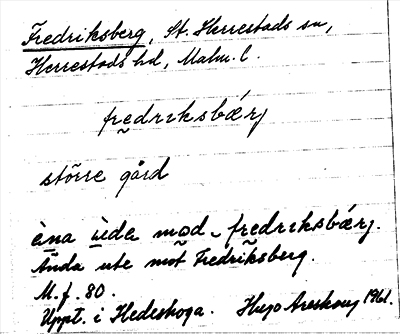 Fredriksberg, St. Herrestads sn,
Herrestads hd, Malm. l.
fredrɪksbǽrj
större gård
àna ùda mod fredrɪksbǽrj.
Ända ute mot Fredriksberg.
M. f. 80.
Uppt. i Hedeskoga. Hugo Areskoug 1961.